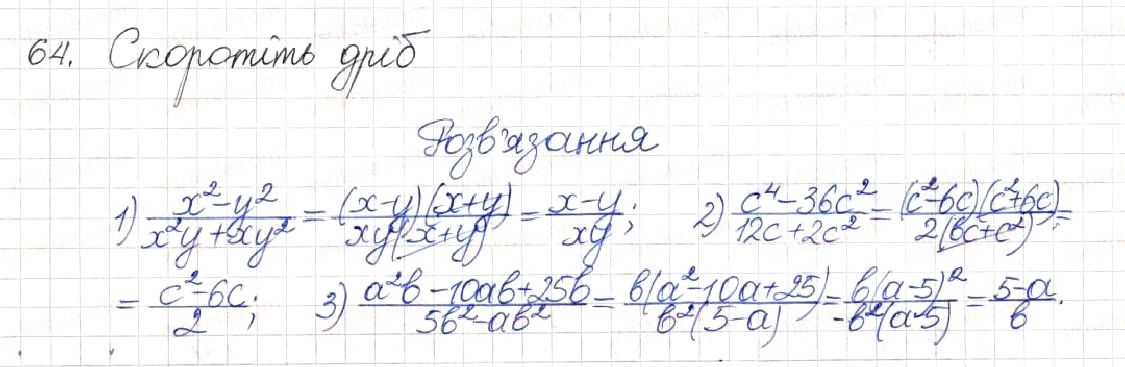 64. Скоротіть дріб
Розв'язання
1) \frac{x²-y²}{x²y+xy²} = \frac{(x-y)(x+y)}{xy(x+y)} = \frac{x-y}{xy}; 2) \frac{c⁴-36c²}{12c+2c²} = \frac{(c²-6c)(c²+6c)}{2(6c+c²)} =
= \frac{c²-6c}{2}; 3) \frac{a²b-10ab+25b}{5b²-ab²} = \frac{b(a²-10a+25)}{b²(5-a)} = \frac{b(a-5)²}{-b²(a-5)} = \frac{5-a}{b}.